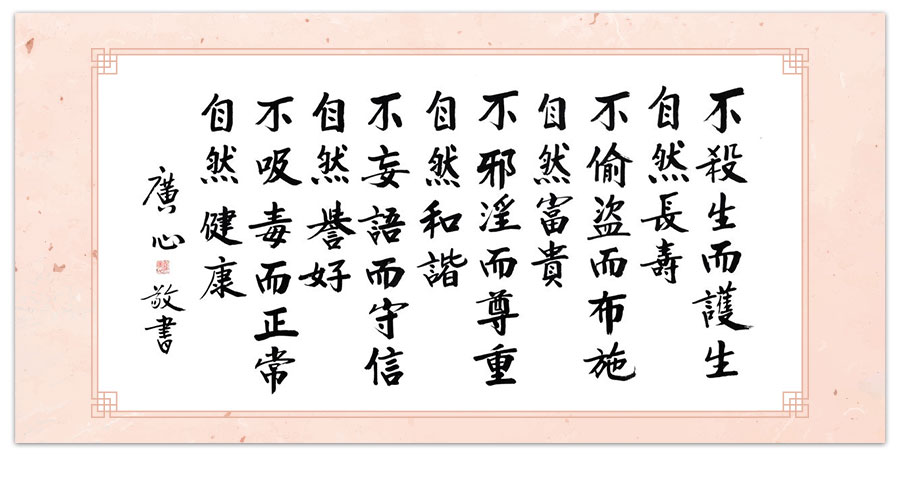 不殺生而護生
自然長壽
不偷盜而布施
自然富貴
不邪淫而尊重
自然和諧
不妄語而守信
自然譽好
不吸毒而正常
自然健康
廣心敬書